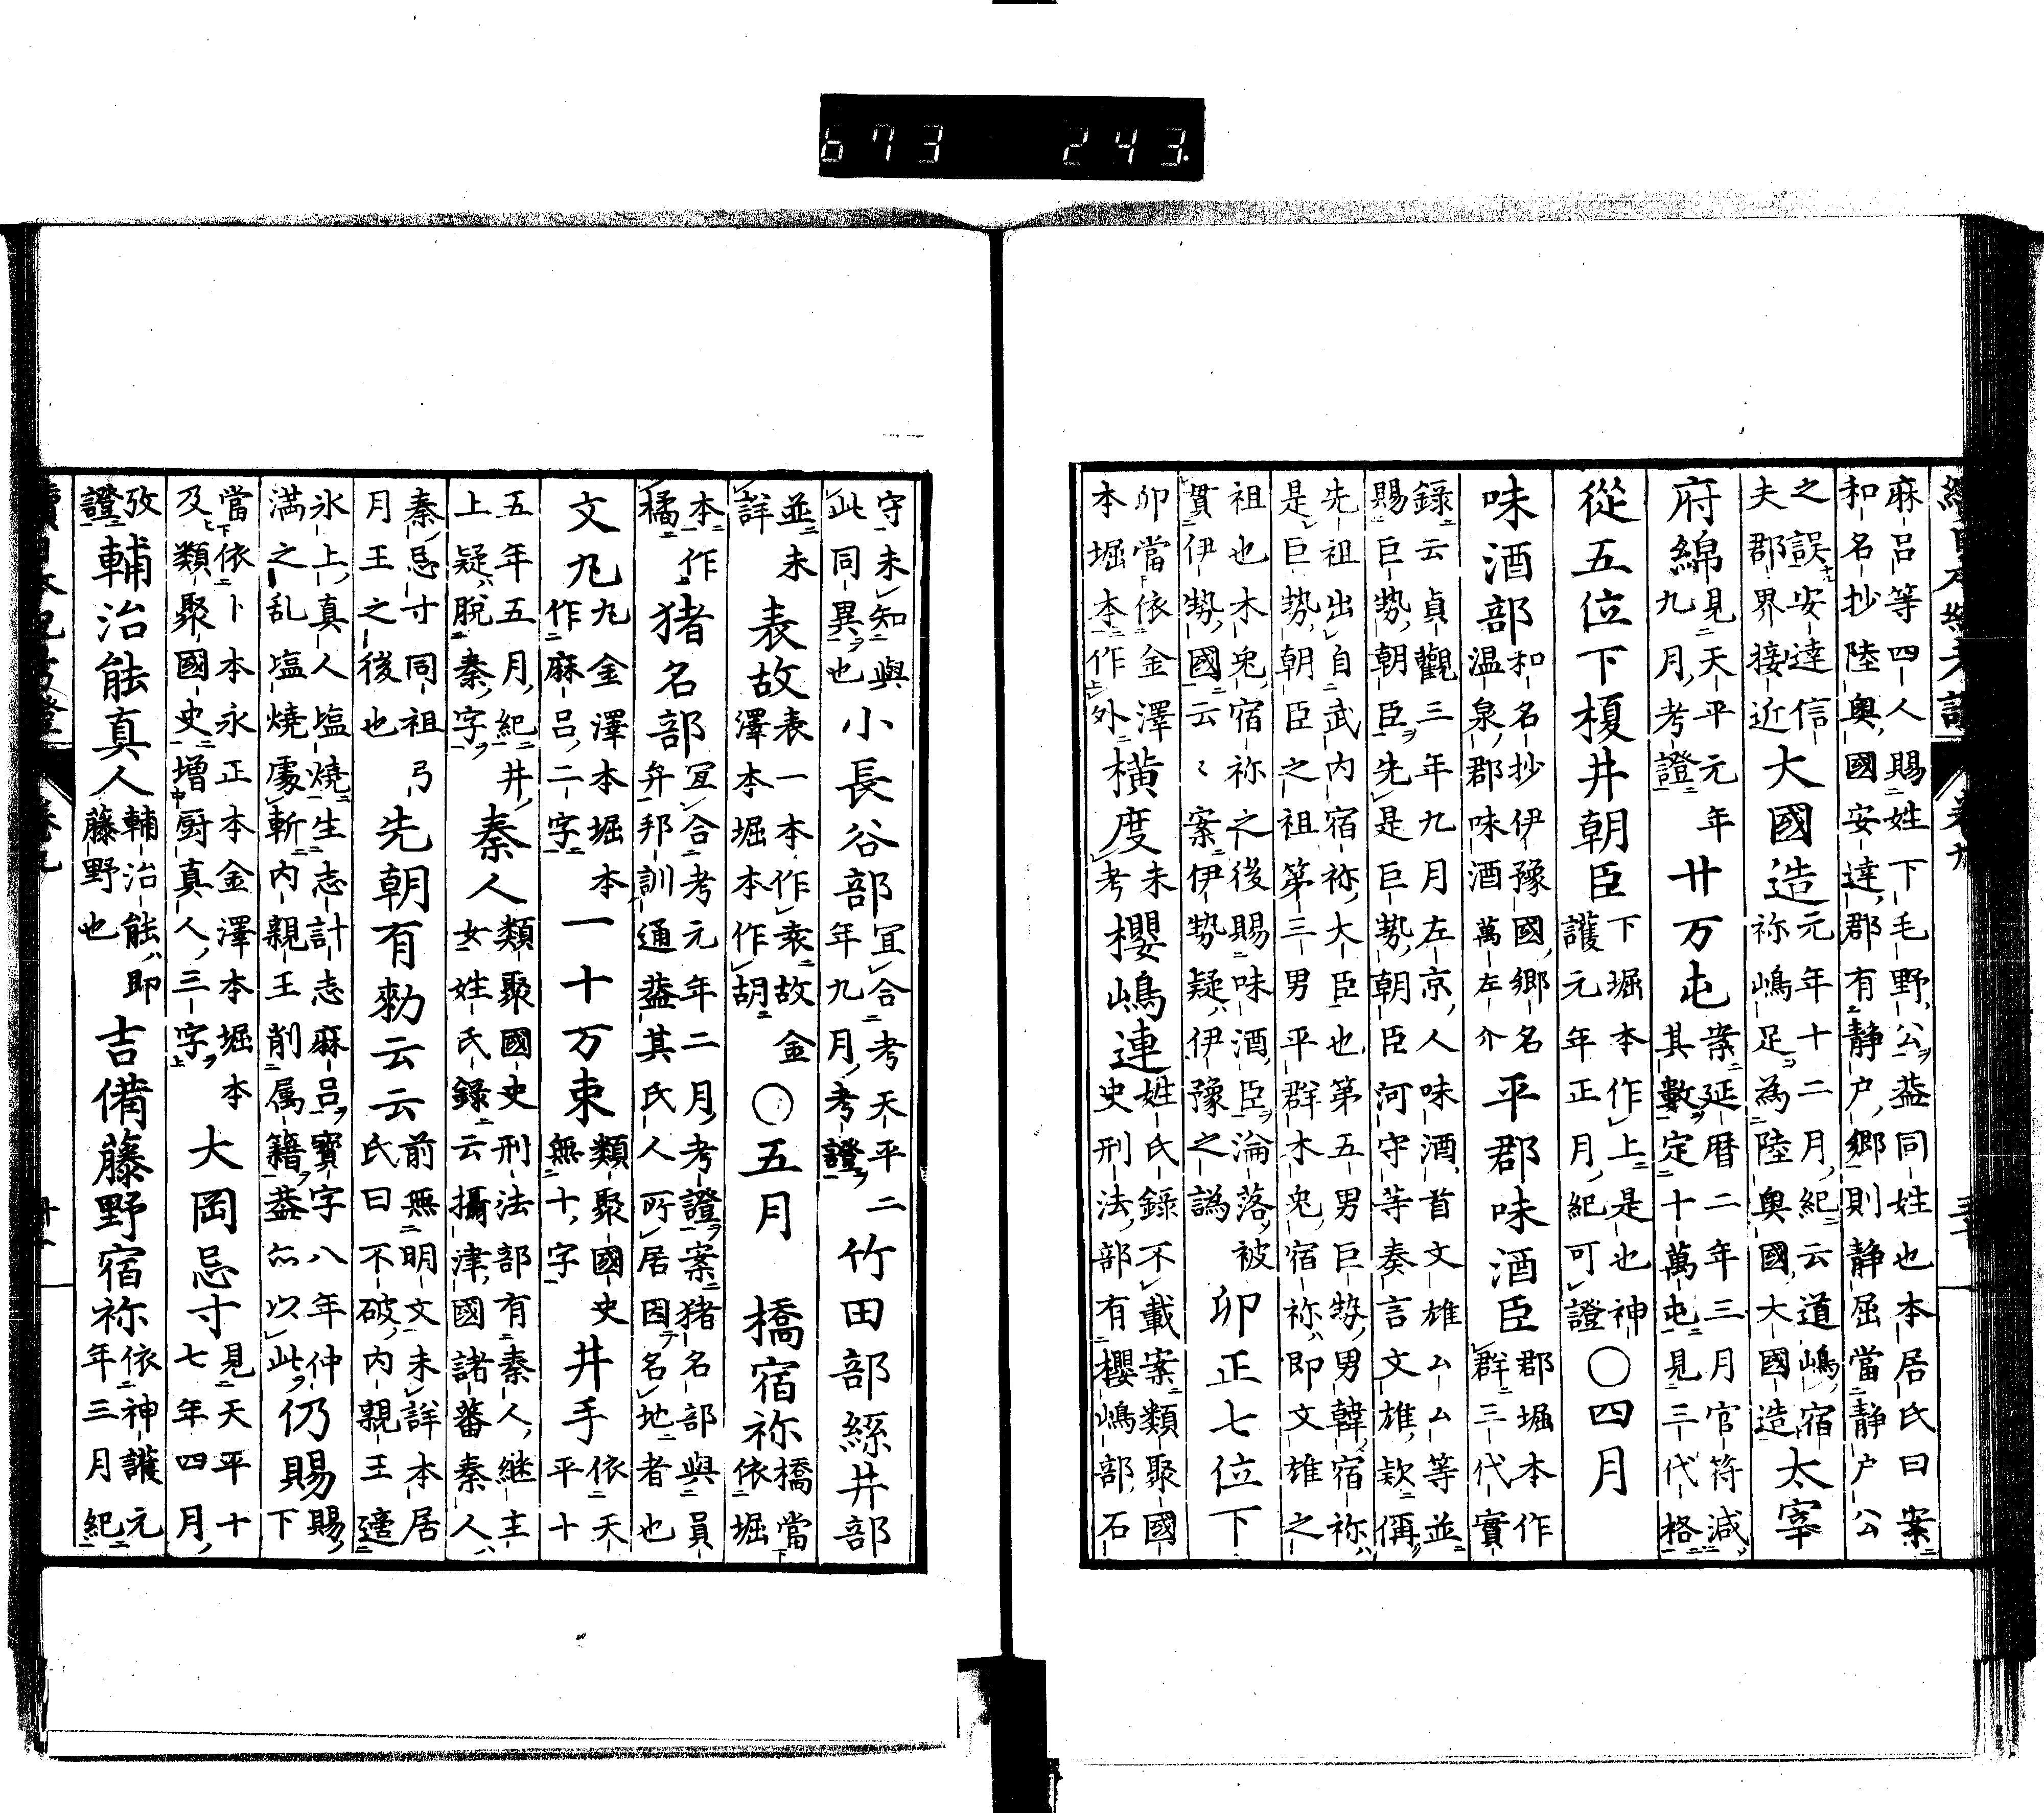 673 243
麻呂等四人賜姓下毛野公蓋同姓也本居氏曰案
和名抄陸奥國安達郡有静戸郷則静屈當静戸公
之誤安達信
夫郡界接近
大國造
元年十二月紀云道嶋宿
祢嶋足為陸奥國大國造
太宰
府綿
見天平元年
九月考證
廿万屯
案延暦二年三月官符減
其數定十萬屯見三代格
從五位下榎井朝臣
下堀本作上是也神
護元年正月紀可證
〇四月
味酒部
和名抄伊豫國郷名
温泉郡味酒萬左介
平郡味酒臣
郡堀本作
群三代實
錄云貞觀三年九月左京人味酒首文雄厶厶等並
賜巨勢朝臣先是巨勢朝臣河守等奏言文雄欵偁
先祖出自武内宿祢大臣也第五男巨勢男韓宿祢
是巨勢朝臣之祖第三男平群木兎宿祢即文雄之
祖也木兎宿祢之後賜味酒臣淪落被
貫伊勢國云々案伊勢疑伊豫之譌
卯正七位下
卯當依金澤
本堀本作外
横度
未
考
櫻嶋連
姓氏錄不載案類聚國
史刑法部有櫻嶋部石
守未知與
此同異也
小長谷部
冝合考天平二
年九月考證
竹田部絲井部
並未
詳
表故
表一本作袁故金
澤本堀本作胡
〇五月
橋宿祢
橋當
依堀
本作
橘
猪名部
冝合考元年二月考證案猪名部與員
弁邦訓通蓋其氏人所居因名地者也
文九
九金澤本堀本
作麻呂二字
一十万束
類聚國史
無十字
井手
依天
平十
五年五月紀井
上疑脱秦字
秦人
類聚國史刑法部有秦人継主
女姓氏錄云攝津國諸蕃秦人
秦忌寸同祖弓
月王之後也
先朝有勅云云
前無明文未詳本居
氏曰不破内親王適
氷上真人塩燒生志計志麻呂寳字八年仲
満之乱塩燒處斬内親王削属籍蓋亦以此
仍賜
賜
下
當依卜本永正本金澤本堀本
及類聚國史増厨真人三字
大岡忌寸
見天平十
七年四月
攷
證
輔治能真人
輔治能即
藤野也
吉備藤野宿祢
依神護元
年三月紀